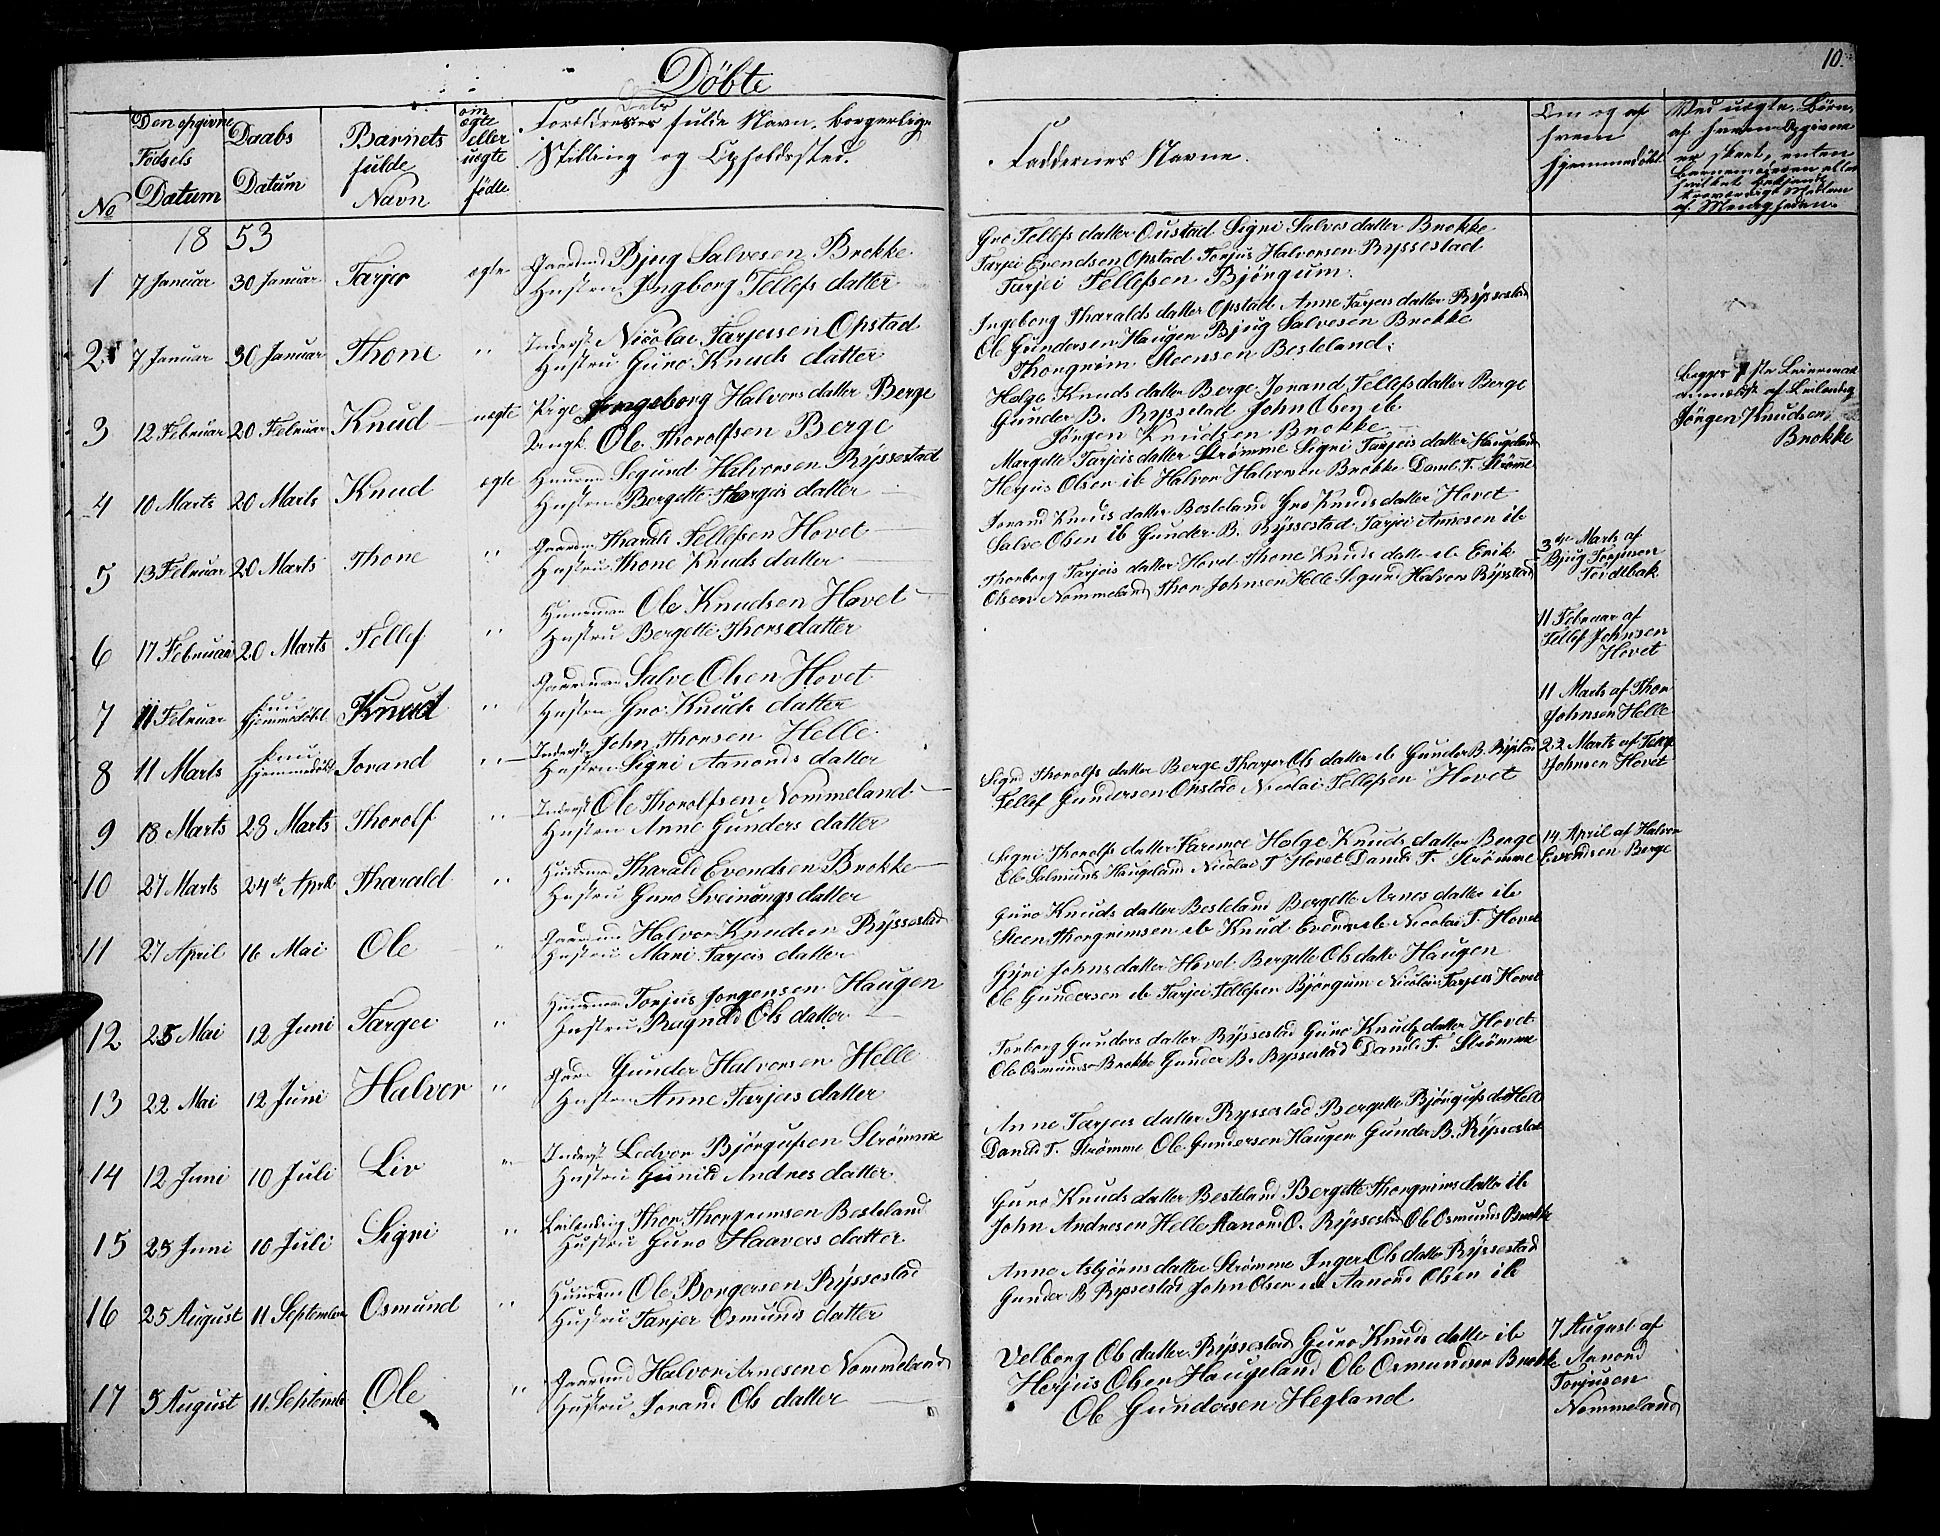 Døbte
10.
No
Den opgivne Fødsels Datum
Daabs Datum
Barnets fulde Navn
om ægte eller uægte fødte
Forældrenes fulde Navn, borgerlige Stilling og Opholdssted.
Faddernes Navne.
Om og af hvem hjemmedøbt
1853
1 7 Januar 30 Januar Tarjer ægte Gaardmd Bjug Salvesen Brokke
Hustru Ingborg Tellefs datter
Gro Tellefs datter Oustad Signi Salves datter Brokke
Tarjei Evendsen Opstad Torjus Halvorsen Ryssestad
Tarjei Tellefsen Bjørgum.
2 7 Januar 30 Januar Thone " Inderst Nicolai Tarjeisen Opstad
Hustru Guro Knuds datter
Ingeborg Tharalds datter Opstad Anne Tarjeis datter Ryssestad
Ole Gundersen Haugen Bjug Salvesen Brokke
Thorgrim Steensen Besteland.
3 12 Februar 20 Februar Knud uægte Pige Ingeborg Halvors datter Berge
Ungk. Ole Thorolfsen Berge
Helge Knuds datter Berge Jorand Tellefs datter Berge
Gunder B. Ryssestad John Olsen ib
Jørgen Knudsen Brokke
Begges 1ste Leiermaal
af Leilending
Jørgen Knudsen
Brokke
4 10 Marts 20 Marts Knud ægte Huusmd Segund Halvorsen Ryssestad
Hustru Bergette Thorgeis datter
Margette Tarjeis datter Strømme Signi Tarjeis datter Haugeland
Herjus Olsen ib Halvor Halvorsen Brokke Daniel T. Strømme
5 13 Februar 20 Marts Thone " Gaardm Tharald Tellefsen Hovet
Hustru Thone Knuds datter
Jorand Knuds datter Besteland Gro Knuds datter Hovet
Salve Olsen ib Gunder B. Ryssestad Tarjei Arnesen ib
3die Marts af
Bjug Torjusen
6 17 Februar 20 Marts Tellef " Huusman Ole Knudsen Hovet
Hustru Bergette Thors datter
Thorborg Tarjeis datter Hovet Thone Knuds datter ib Erik
Olsen Nommeland Thor Johnsen Helle Segund Halvors Ryssestad
7 11 Februar hjemmedøbt Knud " Gaardman Salve Olsen Hovet
Hustru Gro Knuds datter
11 Februar af
Tellef Johnsen
Hovet
8 11 Marts hjemmedøbt Jorand " Inderst John Thorsen Helle
Hustru Signi Aanonds datter
11 Marts af Thor
Johnsen Helle
9 18 Marts 28 Marts Thorolf " Inderst Ole Thorolfsen Nommeland
Hustru Anne Gunders datter
Signi Thorolfs datter Berge Tharjer Ols datter ib Gunder B. Ryssestad
Tellef Gundersen Opstad Nicolai Tellefsen Hovet
22 Marts af Tellef
Johnsen Hovet
10 27 Marts 24de April Tharald " Huusman Tharald Evendsen Brokke
Hustru Guro Sveinungs datter
Signi Thorolfs datter Faremoe Helge Knuds datter Berge
Ole Salmunds Haugeland Nicolai T Hovet Daniel T. Strømme
14 April af Halvor
Evendsen Berge
11 27 April 16 Mai Ole " Gaardmd Halvor Knudsen Ryssestad
Hustru Mari Tarjeis datter
Guro Knuds datter Besteland Bergette Arnes datter ib
Steen Thorgrimsen ib Knud Evends ib Nicolai T. Hovet
12 25 Mai 12 Juni Targei " Huusman Torjus Jørgensen Haugen
Hustru Ragnild Ols datter
Gyri Johns datter Hovet Bergette Ols datter Haugen
Ole Gundersen ib Tarjei Tellefsen Bjørgum Nicolai Tarjeis Hovet
13 22 Mai 12 Juni Halvor " Gaardm Gunder Halvorsen Helle
Hustru Anne Tarjeis datter
Torborg Gunders datter Ryssestad Guro Knuds datter Hovet
Ole Osmunds Brokke Gunder B. Ryssestad Daniel T. Strømme
14 12 Juni 10 Juli Liv " Inderst Ledvor Bjørgufsen Strømme
Hustru Gunild Andres datter
Anne Tarjeis datter Ryssestad Bergette Bjørgufs dat Helle
Daniel T. Strømme Ole Gundersen Haugen Gunder B. Ryssestad
15 25 Juni 10 Juli Signi " Leilending Thor Thorgrimsen Besteland
Hustru Guro Haavers datter
Guro Knuds datter Besteland Bergette Thorgrims datter ib
John Andresen Helle Aanond O. Ryssestad Ole Osmunds Brokke
16 25 August 11 September Osmund " Huusmd Ole Borgersen Ryssestad
Hustru Tarjer Osmunds datter
Anne Asbjørns datter Strømme Inger Ols datter Ryssestad
Gunder B Ryssestad John Olsen ib Aanond Olsen ib
17 5 August 11 Septembr Ole " Gaardmd Halvor Arnesen Nommeland
Hustru Jorand Ols datter
Velborg Ols datter Ryssestad Guro Knuds datter ib
Herjus Olsen Haugeland Ole Osmundsen Brokke
Ole Gundersen Hegland
7 August af
Aanond
Torjusen
Nommeland